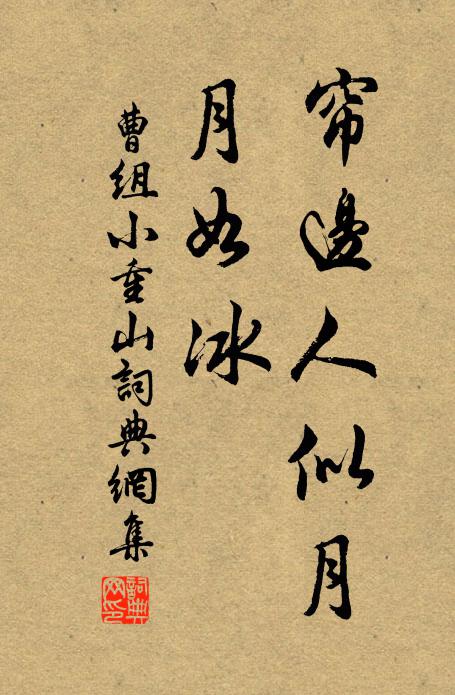 帘邊人似月
月如冰
曹組小重山詞典網集
詞典网印